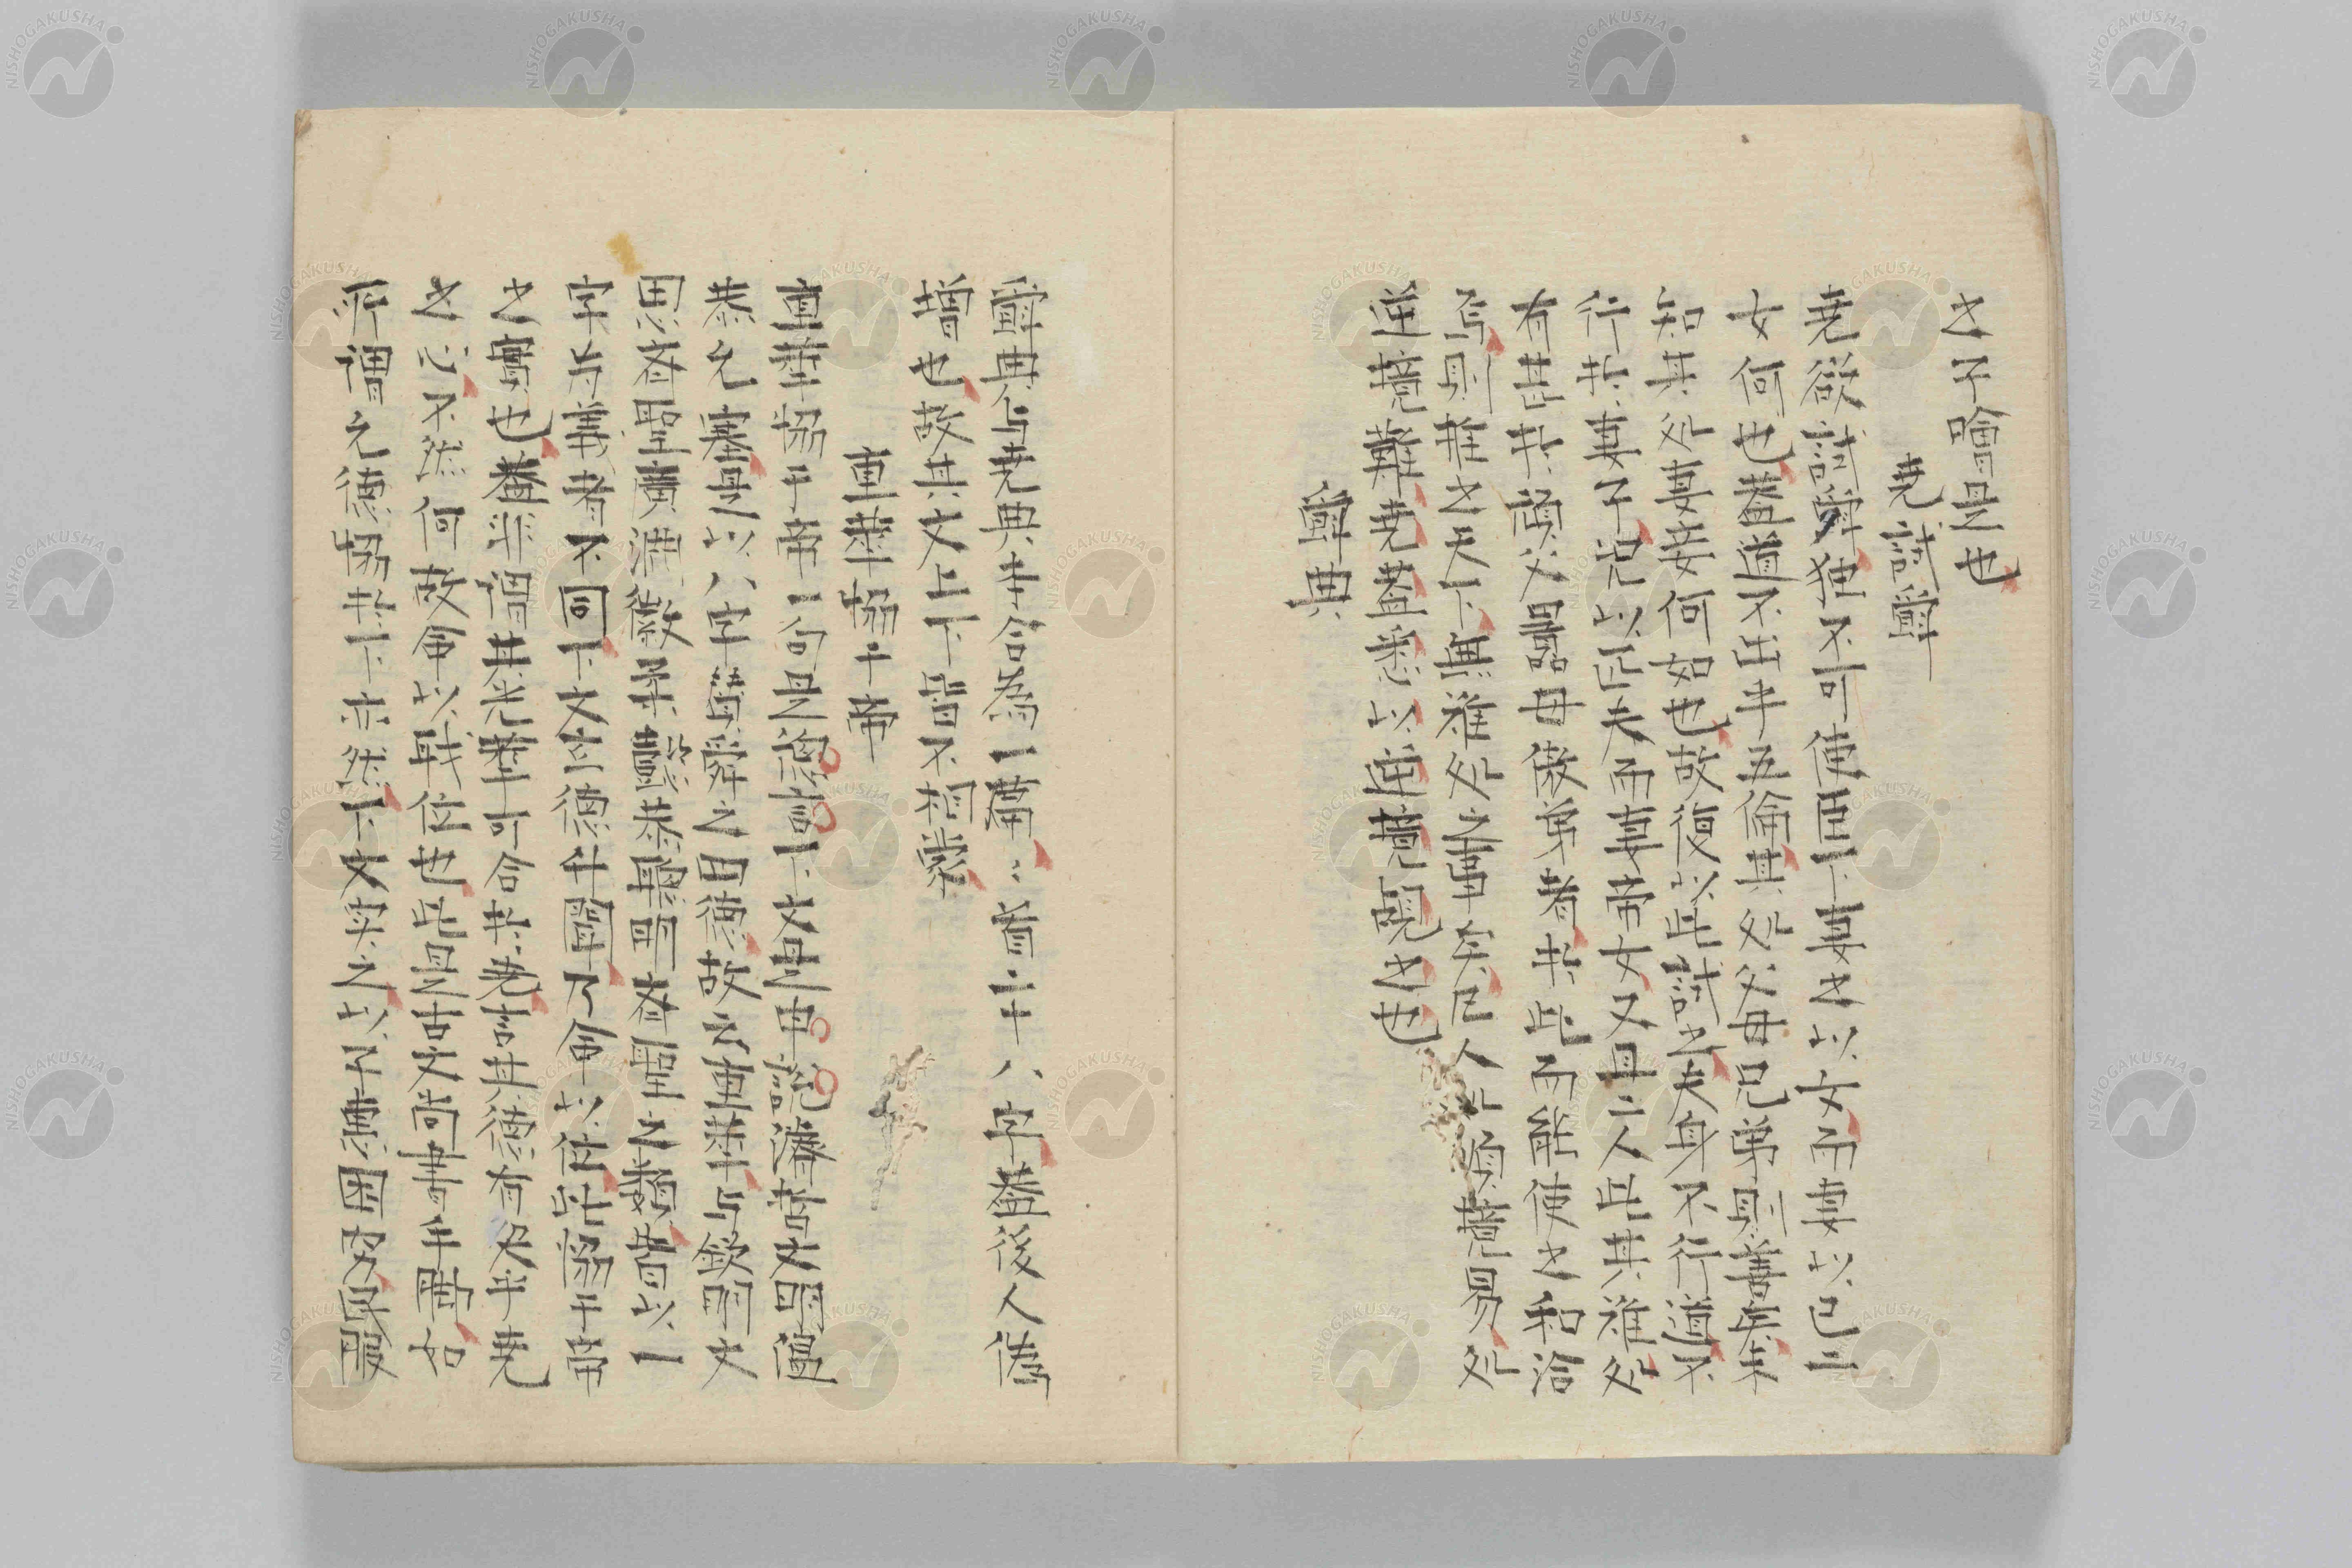 之子噲是也
堯試舜
堯欲試舜猶不可使臣下妻之以女而妻以己二
女何也蓋道不出乎五倫其处父母兄弟則善矣未
知其处妻妾何如也故復以此試之夫身不行道不
行於妻子况以匹夫而妻帝女又且二人此其難处
有甚於頑父嚚母傲弟者於此而能使之和洽
焉則推之天下無難处之事矣凡人順境易处
逆境難堯蓋悉以逆境觀之也
舜典
舜典与堯典本合為一篇、首二十八字蓋後人偽
增也故其文上下皆不相蒙
重華協于帝
重華協于帝一句是總言下文是申說濬哲文明溫
恭允塞是以八字贊舜之田德故云重華与欽明文
思齊聖廣淵徽柔懿恭聰明齊聖之類皆以一
字为義者不同下文玄德升聞乃命以位此協于帝
之實也蓋非謂其光華可合於堯言其德有及乎堯
之心不然何故命以職位也此是古文尚書手腳如
所謂允德協於下亦然下文实之以子惠困窮民服